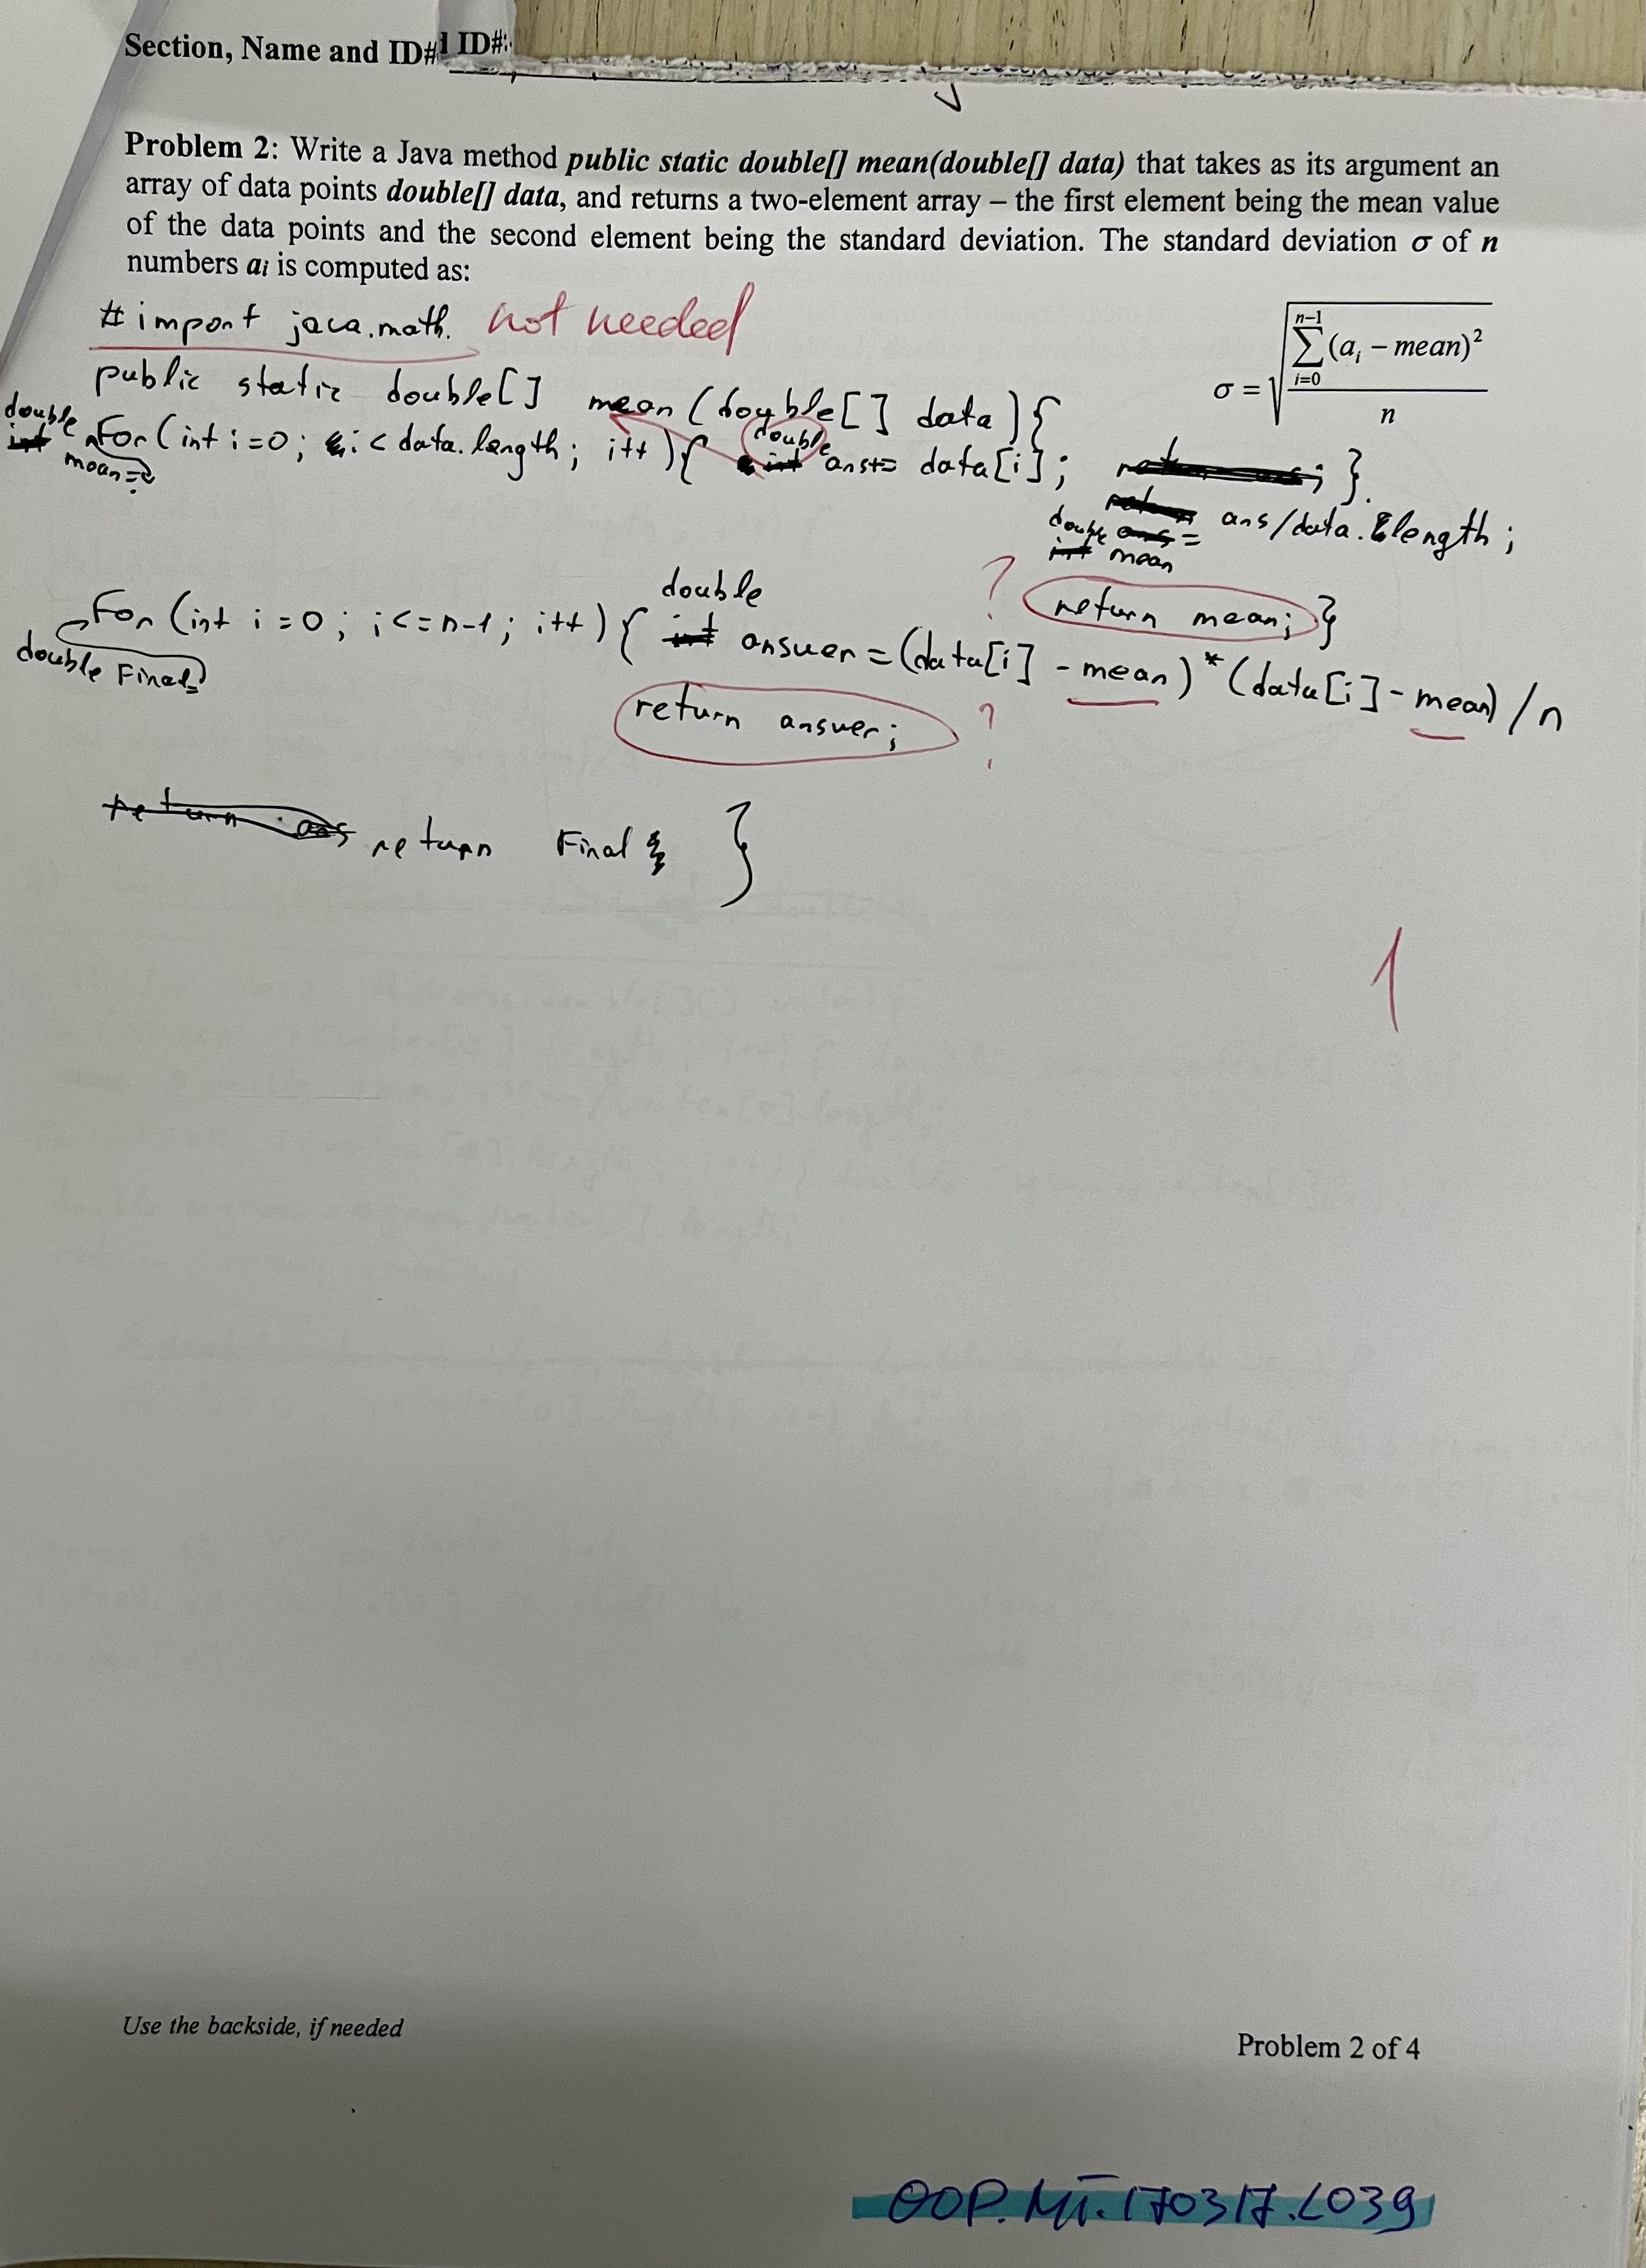 Section, Name and ID# ID#:
Problem 2: Write a Java method public static double[] mean(double[] data) that takes as its argument an
array of data points double[] data, and returns a two-element array – the first element being the mean value
of the data points and the second element being the standard deviation. The standard deviation σ of n
numbers ai is computed as:
σ = √( ∑ i=0 n−1 (ai − mean)² / n )
# import java.math. not needed
public static double[] mean (double[] data) {
double mean=
for (int i=0; i < data.length; i++) { double ans+= data[i]; }
double mean = ans/data.length;
return mean; } ?
double Final=
For (int i=0; i<=n-1; i++) { double answer = (data[i] - mean) * (data[i] - mean) / n
return answer; ?
return Final }
1
Use the backside, if needed
Problem 2 of 4
OOP.MT.170317.L039